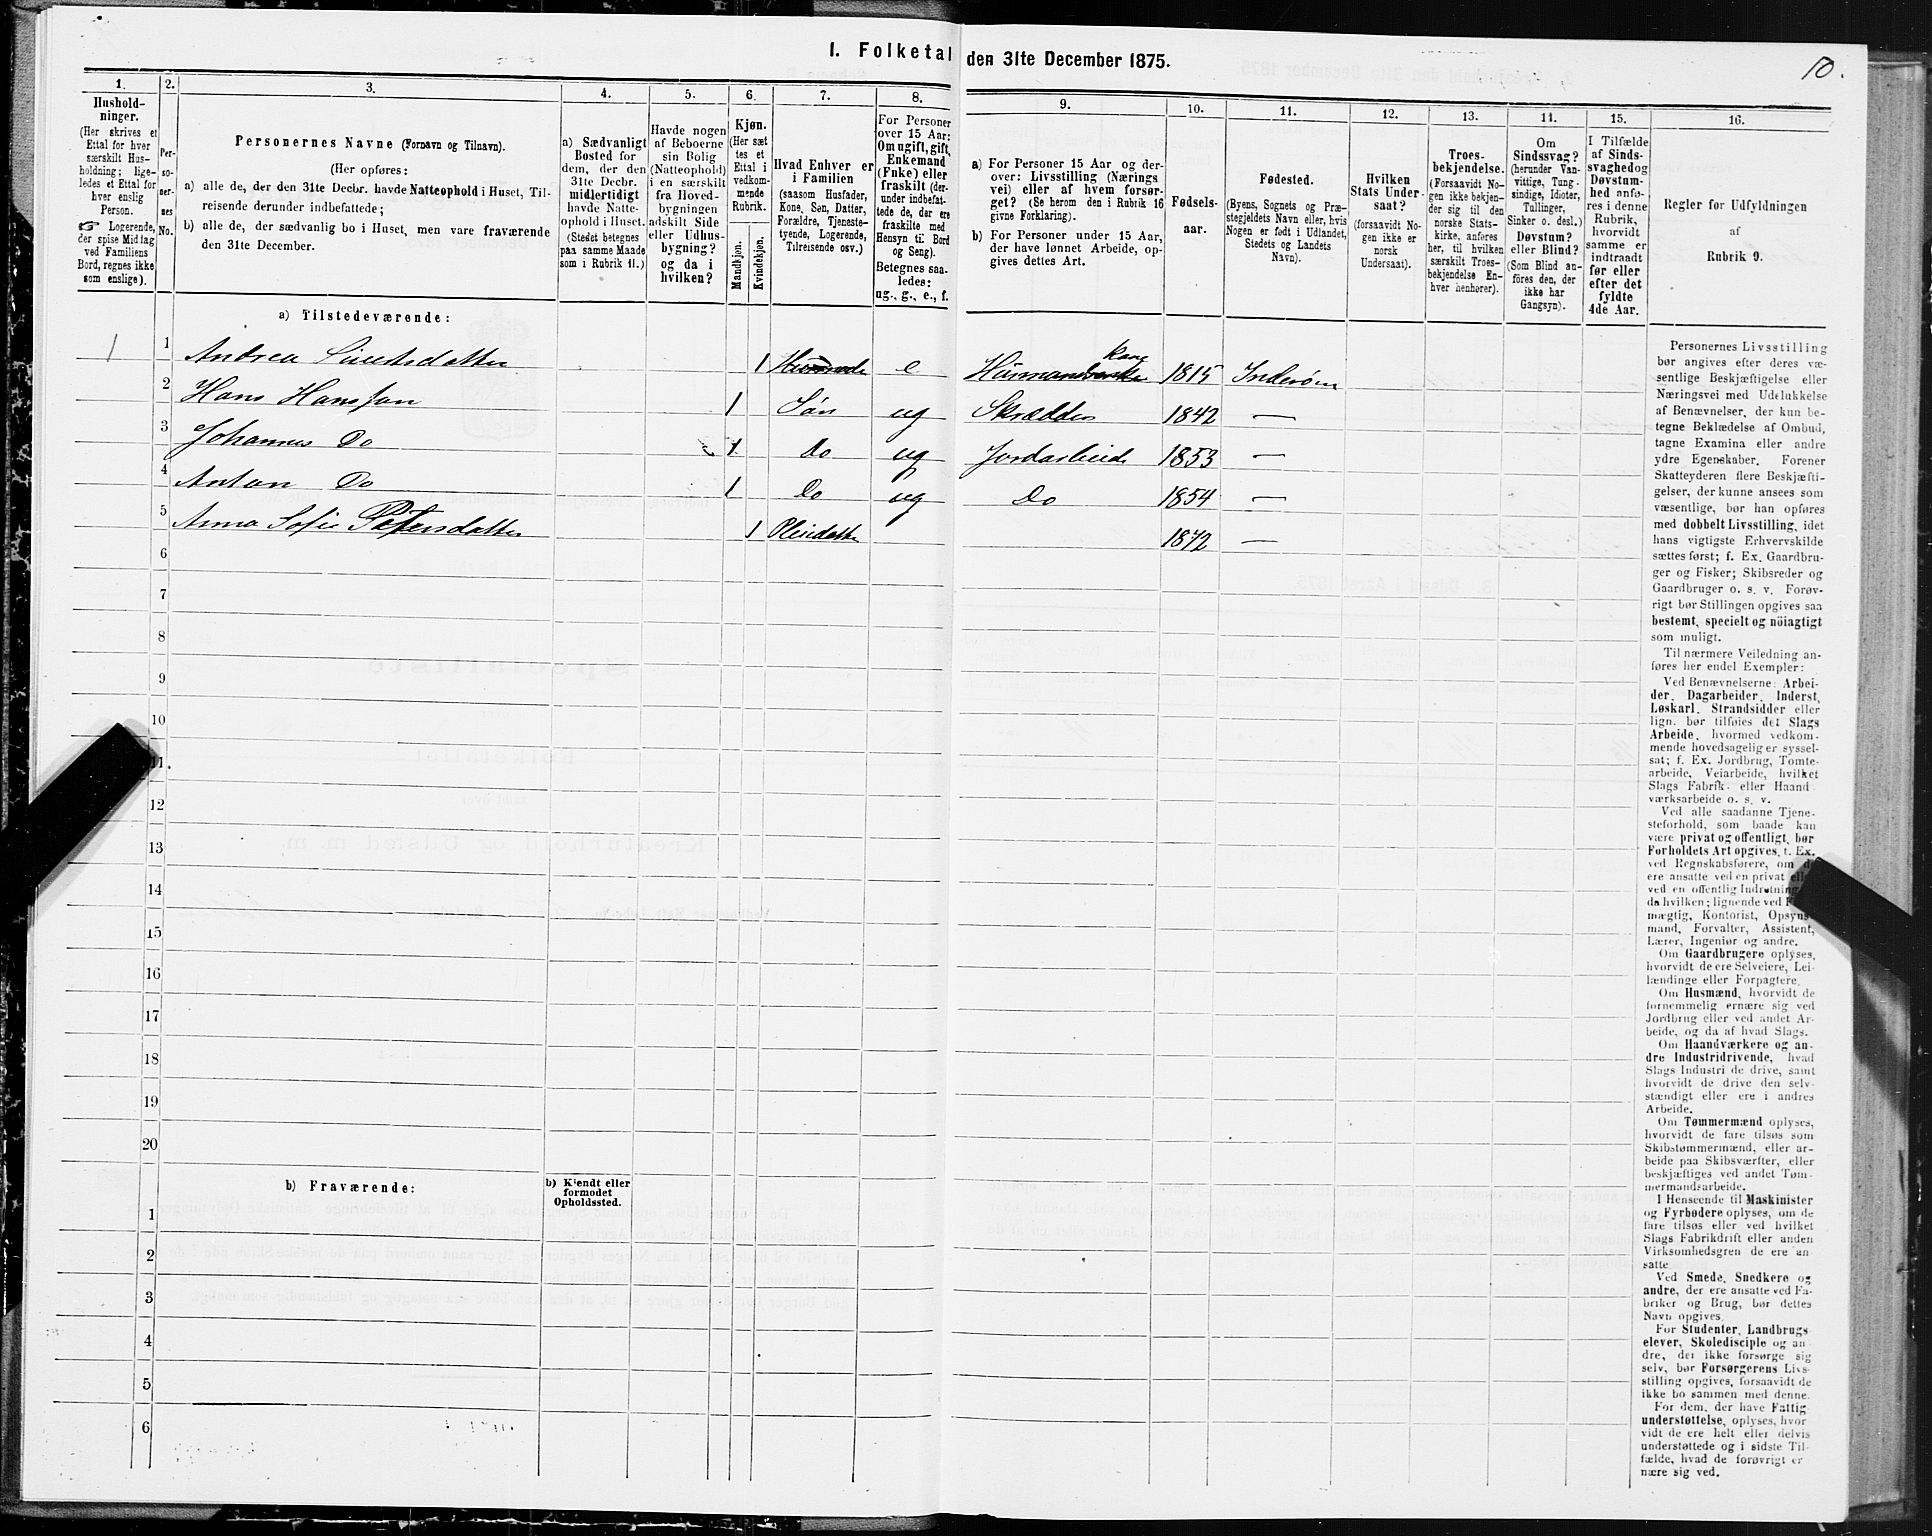 I. Folketal den 31te December 1875.
10.
1.
Hushold-
ninger.
(Her skrives et
Ettal for hver
særskilt Hus-
holdning; lige-
ledes et Ettal for
hver enslig
Person.
☞ Logerende,
der spise Middag
ved Familiens
Bord, regnes ikke
som enslige).
2.
Per-
so-
ner-
nes
No.
3.
Personernes Navne (Fornavn og Tilnavn).
(Her opføres:
a) alle de, der den 31te Decbr. havde Natteophold i Huset, Til-
reisende derunder indbefattede;
b) alle de, der sædvanlig bo i Huset, men vare fraværende
den 31te December.
4.
a) Sædvanligt
Bosted for
dem, der den
31te Decbr.
midlertidigt
havde Natte-
ophold i Huset.
(Stedet betegnes
paa samme Maade
som i Rubrik 11.)
5.
Havde nogen
af Beboerne
sin Bolig
(Natteophold)
i en særskilt
fra Hoved-
bygningen
adskilt Side
eller Udhus-
bygning?
og da i
hvilken?
6.
Kjøn.
(Her sæt
tes et
Ettal i
vedkom-
mende
Rubrik.
Mandkjøn.
Kvindekjøn.
7.
Hvad Enhver er
i Familien
(saasom Husfader,
Kone, Søn, Datter,
Forældre, Tjeneste-
tyende, Logerende,
Tilreisende osv.)
8.
For Personer
over 15 Aar:
Om ugift, gift,
Enkemand
(Enke) eller
fraskilt (der-
under indbefat-
tede de, der ere
fraskilte med
Hensyn til Bord
og Seng).
Betegnes saa-
ledes:
ug., g., e., f.
9.
a) For Personer 15 Aar og der-
over: Livsstilling (Nærings
vei) eller af hvem forsør-
get? (Se herom den i Rubrik 16
givne Forklaring).
b) For Personer under 15 Aar,
der have lønnet Arbeide, op-
gives dettes Art.
10.
Fødsels-
aar.
11.
Fødested.
(Byens, Sognets og Præ-
stegjeldets Navn eller, hvis
Nogen er født i Udlandet,
Stedets og Landets
Navn).
12.
Hvilken
Stats Under-
saat?
(forsaavidt No-
gen ikke er
norsk
Undersaat).
13.
Troes-
bekjendelse.
(Forsaavidt No-
gen ikke bekjen-
der sig til den
norske Stats-
kirke, anføres
her, til hvilken
særskilt Troes-
bekjendelse En-
hver henhører).
14.
Om
Sindssvag?
(herunder Van-
vittige, Tung-
sindige, Idioter,
Tullinger,
Sinker o. desl.)
Døvstum?
eller Blind?
(Som Blind an-
føres den, der
ikke har
Gangsyn).
15.
I Tilfælde
af Sinds-
svaghed og
Døvstum-
hed anfø-
res i denne
Rubrik,
hvorvidt
samme er
indtraadt
før eller
efter det
fyldte
4de Aar.
16.
Regler for Udfyldningen
af
Rubrik 9.
a) Tilstedeværende:
1 1 Andrea 1 e Kone 1815 Inderøen
2 Hans Hanssøn 1 Søn ug Skrædder 1842 —
3 Johannes Do 1 Do ug Jordarbeide 1853 —
4 Anton Do 1 Do ug Do 1854 —
5 Anna Sofie Petersdatter 1 Pleiedatter 1872 —
6
7
8
9
10
11
12
13
14
15
16
17
18
19
20
b) Fraværende:
b) Kjendt eller
formodet
Opholdssted.
1
2
3
4
5
6
Personernes Livsstilling
bør angives efter deres væ-
sentlige Beskjæftigelse eller
Næringsvei med Udelukkelse
af Benævnelser, der kun be-
tegne Beklædelse af Ombud,
tagne Examina eller andre
ydre Egenskaber. Forener
Skatteyderen flere Beskjæfti-
gelser, der kunne ansees som
væsentlige, bør han opføres
med dobbelt Livsstilling, idet
hans vigtigste Erhvervskilde
sættes først; f. Ex. Gaardbru-
ger og Fisker; Skibsreder og
Gaardbruger o. s. v. Forøv-
rigt bør Stillingen opgives saa
bestemt, specielt og nöiagtigt
som muligt.
Til nærmere Veiledning an-
føres her endel Exempler:
Ved Benævnelserne: Arbei-
der, Dagarbeider, Inderst,
Løskarl, Strandsidder eller
lign. bør tilføies det Slags
Arbeide, hvormed vedkom-
mende hovedsagelig er syssel-
sat; f. Ex. Jordbrug, Tomte-
arbeide, Veiarbeide, hvilket
Slags Fabrik- eller Haand
værksarbeide o. s. v.
Ved alle saadanne Tjene-
steforhold, som baade kan
være privat og offentligt, bør
Forholdets Art opgives, f. Ex.
ved Regnskabsførere, om de
ere ansatte ved en privat eller
ved en offentlig Indretning
da hvilken; lignende ved
mægtig, Kontorist, Opsyns-
mand, Forvalter, Assistent,
Lærer, Ingeniør og andre.
Om Gaardbrugere oplyses,
hvorvidt de ere Selveiere, Lei-
lændinge eller Forpagtere.
Om Husmænd, hvorvidt de
fornemmelig ernære sig ved
Jordbrug eller ved andet Ar-
beide, og da af hvad Slags.
Om Haandværkere og an-
dre Industridrivende, hvad
Slags Industri de drive, samt
hvorvidt de drive den selv-
stændigt eller ere i andres
Arbeide.
Om Tømmermænd oplyses,
hvorvidt de fare tilsøs som
Skibstømmermænd, eller ar-
beide paa Skibsværfter, eller
beskjæftiges ved andet Tøm-
mermandsarbeide.
I Henseende til Maskinister
og Fyrbødere oplyses, om de
fare tilsøs eller ved hvilket
Slags Fabrikdrift eller anden
Virksomhedsgren de ere an-
satte.
Ved Smede, Snedkere og
andre, der ere ansatte ved Fa-
briker og Brug, bør dettes
Navn opgives.
For Studenter, Landbrugs
elever, Skoledisciple og an-
dre, der ikke forsørge sig
selv, bør Forsørgerens Livs-
stilling opgives, forsaavidt de
ikke bo sammen med denne.
For dem, der have Fattig-
understøttelse, oplyses, hvor
vidt de ere helt eller delvis
understøttede og i sidste Til-
fælde, hvad de forøvrigt er
nære sig ved.